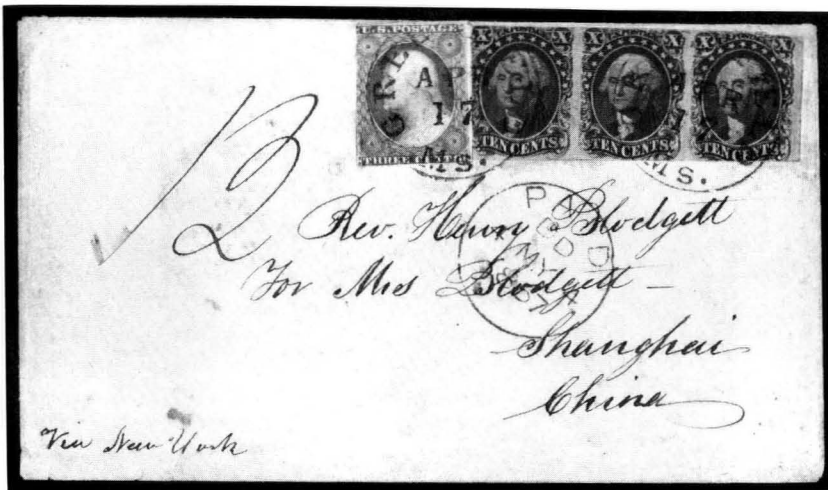 U.S. POSTAGE
THREE CENTS
X X
TEN CENTS
X X
TEN CENTS
X X
TEN CENTS
A
17
MS.
MS.
12
PAID
Rev. Henry Blodgett
For Mrs Blodgett –
Shanghai
China
Via New York